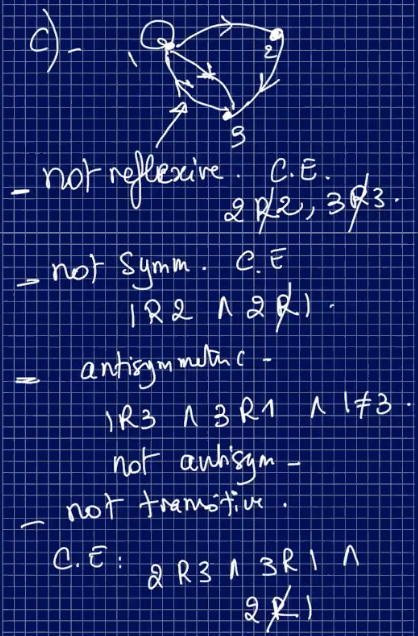 c) -
1
2
3
- not reflexive. C.E.
2 R̸ 2, 3 R̸ 3.
- not Symm. C.E
1R2 ∧ 2 R̸ 1.
= antisymmetric -
1R3 ∧ 3R1 ∧ 1≠3.
not antisym -
- not transitive.
C.E: 2R3 ∧ 3R1 ∧
2 R̸ 1